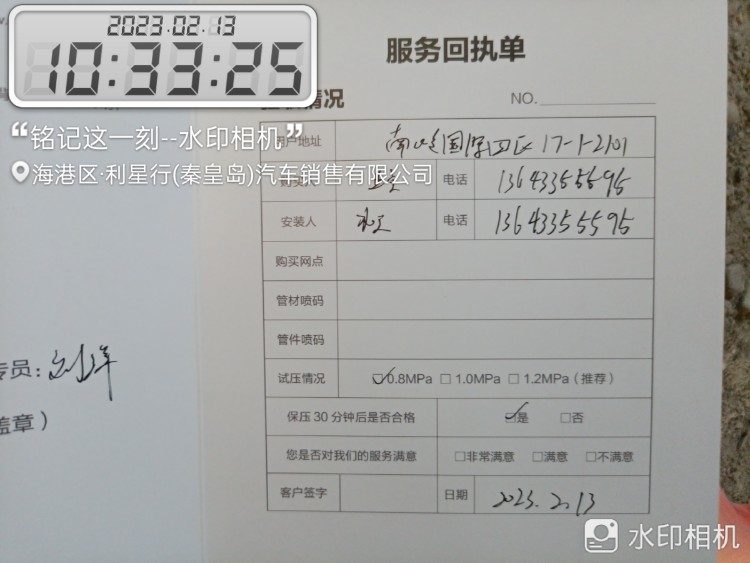 2023.02.13
10:33:25
“铭记这一刻--水印相机”
海港区·利星行(秦皇岛)汽车销售有限公司
服务回执单
情况
NO.
用户地址 南 国际四区 17-1-2101
电话 13643355595
安装人 电话 13643355595
购买网点
管材喷码
管件喷码
试压情况 ☑0.8MPa □1.0MPa □1.2MPa(推荐)
保压30分钟后是否合格 ☑是 □否
您是否对我们的服务满意 □非常满意 □满意 □不满意
客户签字 日期 2023.2.13
专员:刘洋
盖章)
水印相机